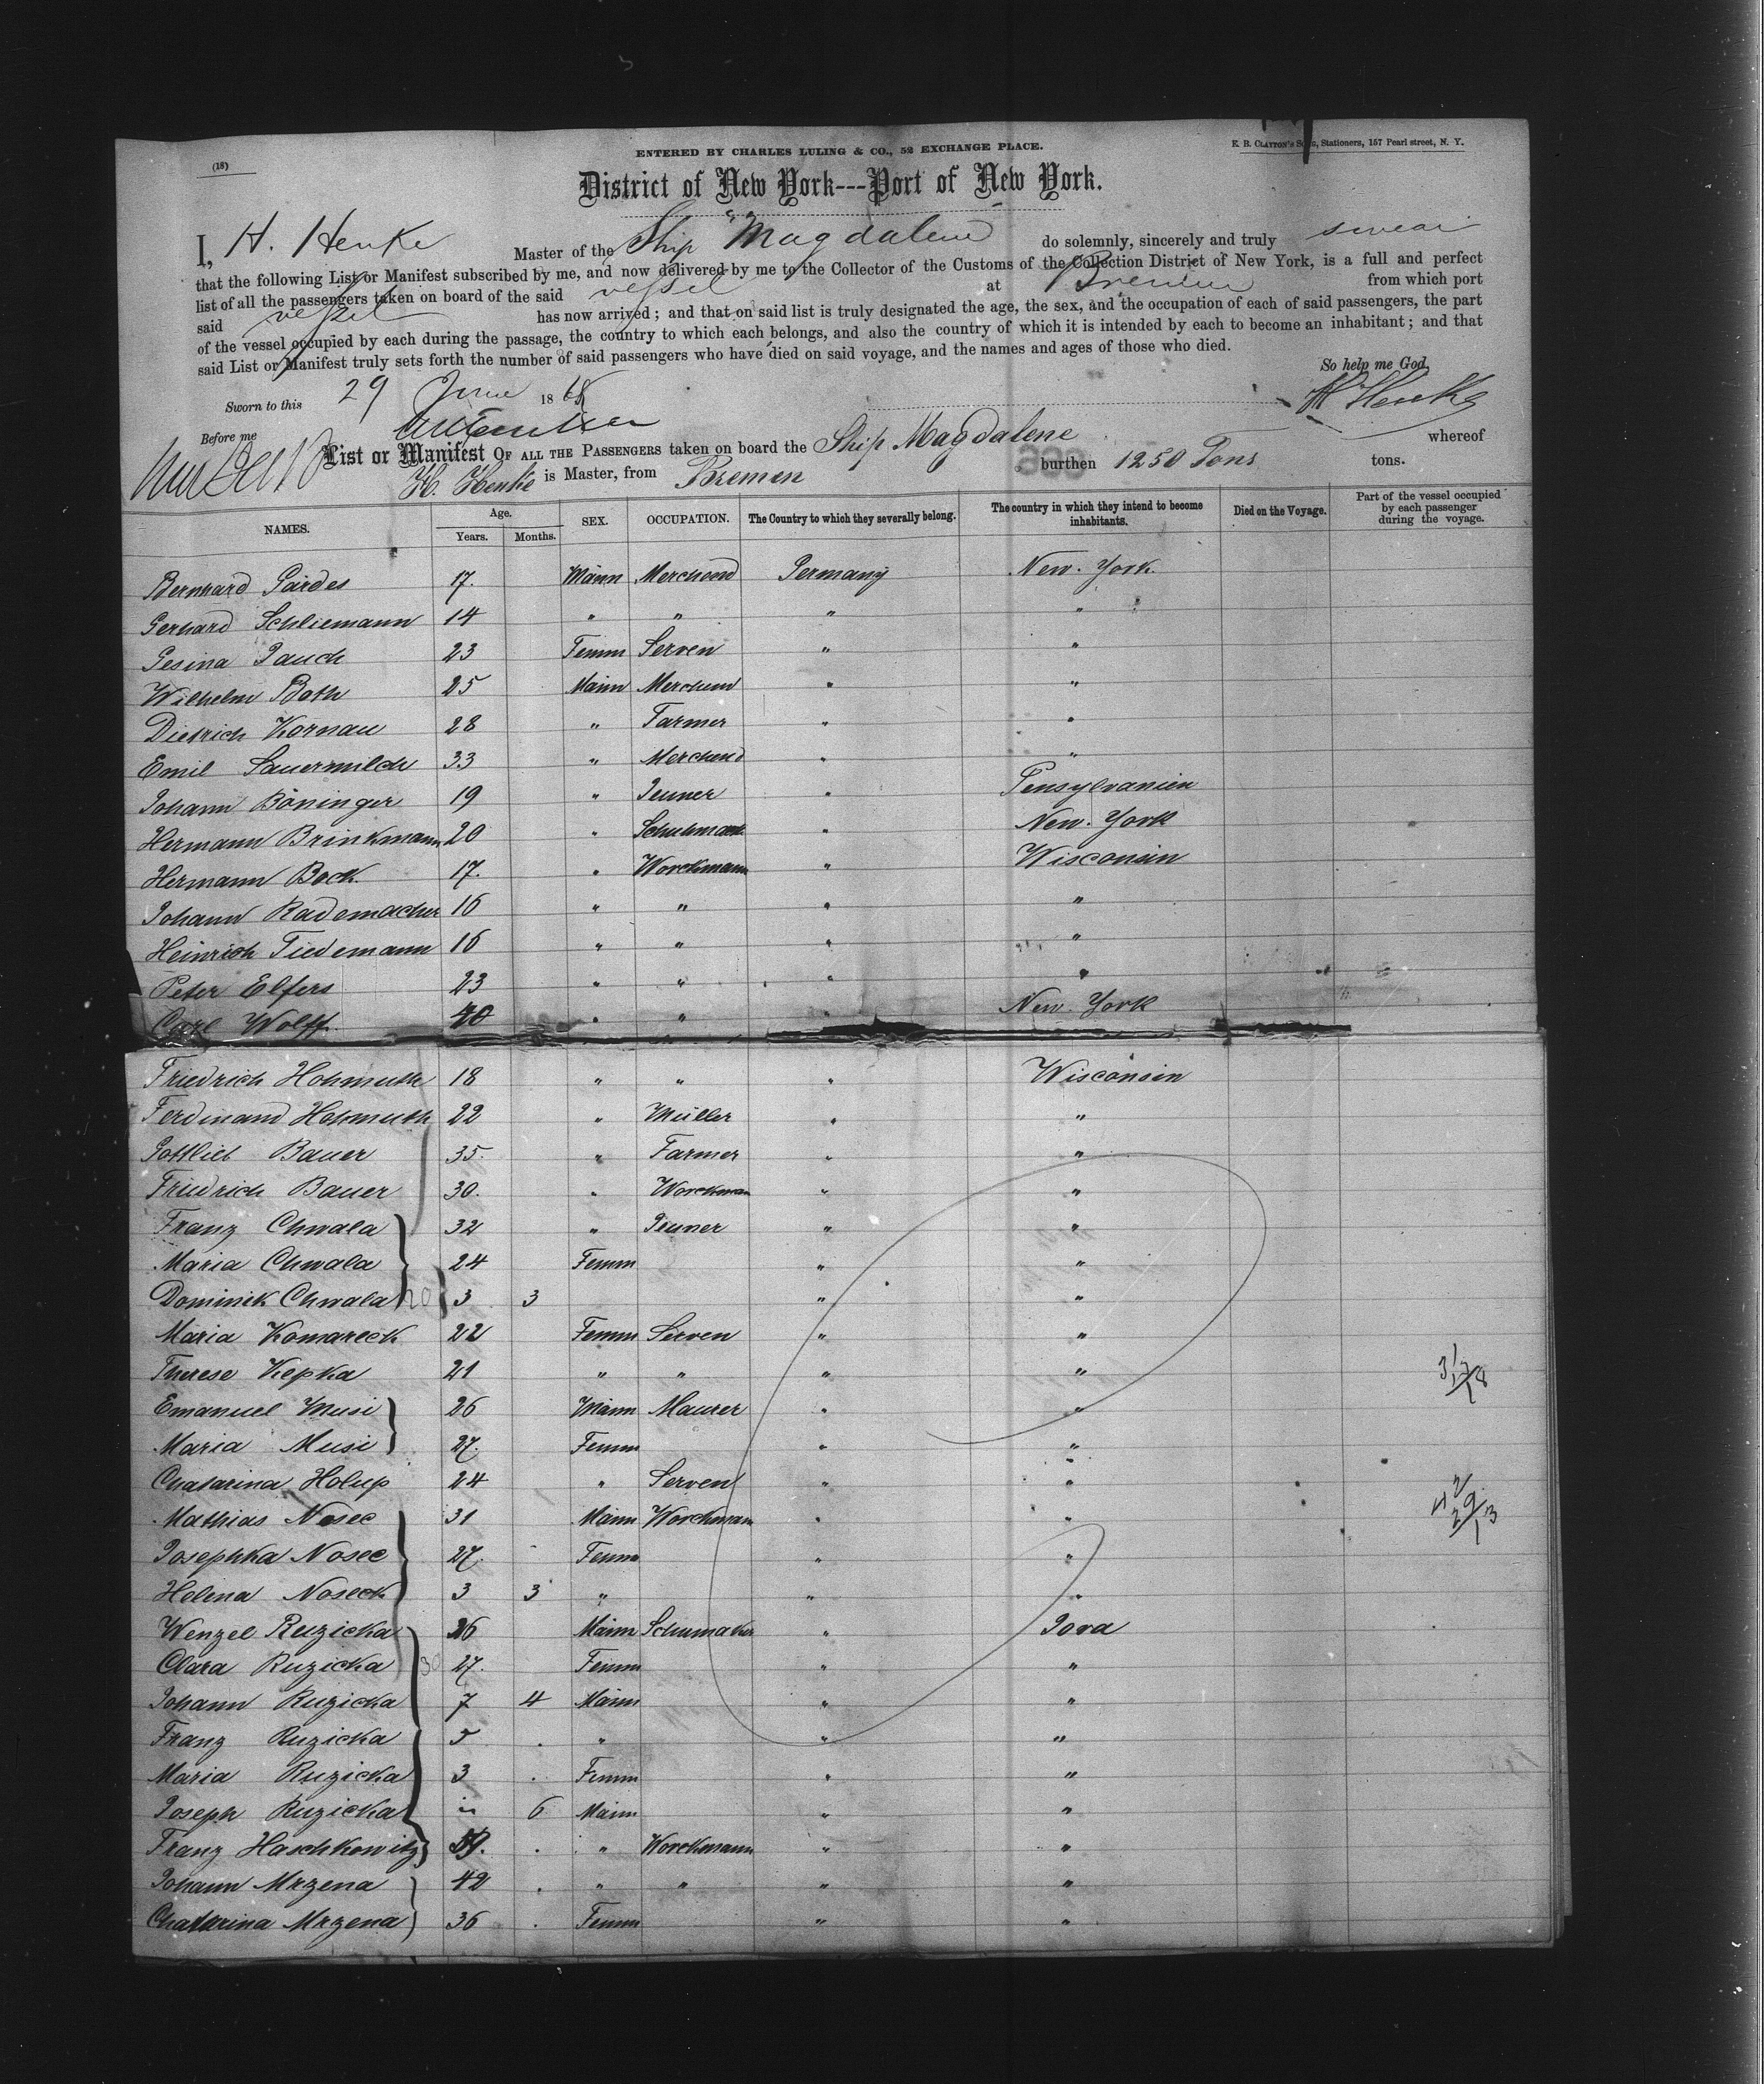 (18)
ENTERED BY CHARLES LULING & CO., 52 EXCHANGE PLACE.
E. B. CLAYTON'S SONS, Stationers, 157 Pearl street, N. Y.
District of New York---Port of New York.
I, H. Henke Master of the Ship "Magdalene do solemnly, sincerely and truly swear
that the following List or Manifest subscribed by me, and now delivered by me to the Collector of the Customs of the Collection District of New York, is a full and perfect
list of all the passengers taken on board of the said vessel at Bremen from which port
said vessel has now arrived; and that on said list is truly designated the age, the sex, and the occupation of each of said passengers, the part
of the vessel occupied by each during the passage, the country to which each belongs, and also the country of which it is intended by each to become an inhabitant; and that
said List or Manifest truly sets forth the number of said passengers who have died on said voyage, and the names and ages of those who died.
So help me God,
Sworn to this 29 June 1868 H Henke
Before me
List or Manifest OF ALL THE PASSENGERS taken on board the Ship Magdalene whereof
H. Henke is Master, from Bremen burthen 1250 Tons tons.
NAMES. Age. Years. Months. SEX. OCCUPATION. The Country to which they severally belong. The country in which they intend to become inhabitants. Died on the Voyage. Part of the vessel occupied by each passenger during the voyage.
Bernhard Gärdes 17. Männ Mercheend Germany New. York
Gerhard Schliemann 14 " " " "
Gesina Pauch 23 Femm Serven " "
Wilhelm Both 25 Männ Merchend " "
Dietrich Kornau 28 " Farmer " "
Emil Sauermilch 33 " Merchend " "
Johann Böninger 19 " Jeuner " Pensylvanien
Hermann Brinkmann 20 " Schuhmach " New. York
Hermann Bock 17. " Worckmann " Wisconsin
Johann Rademacher 16 " " " "
Heinrich Tiedemann 16 " " " "
Peter Elfers 23 " " " "
Carl Wolff 40 " " " New. York
Friedrich Hohmuth 18 " " " Wisconsin
Ferdinand Hohmuth 22 " Müller " "
Gottlieb Bauer 35. " Farmer " "
Friedrich Bauer 30. " Worckman " "
Franz Chwala 32 " Jeuner " "
Maria Chwala 24 Femm " "
Dominick Chwala 3 3 " "
Maria Komareck 22 Femm Serven " "
Therese Kepka 21 " " " "
Emanuel Musi 26 Männ Maurer " "
Maria Musi 27. Femm " "
Chatarina Holup 24 " Serven " "
Mathias Nosec 31 Männ Worckmann " "
Josephka Nosec 27. Femm " "
Helena Noseck 3 3 " " "
Wenzel Ruzicka 26 Männ Schumaker " Jova
Clara Ruzicka 27. Femm " "
Johann Ruzicka 7 4 Männ " "
Franz Ruzicka 5 . " " "
Maria Ruzicka 3 . Femm " "
Joseph Ruzicka " 6 Männ " "
Franz Haschkowitz . " Worckmann " "
Johann Mrzena 42 . " " " "
Chatarina Mrzena 36 . Femm " "